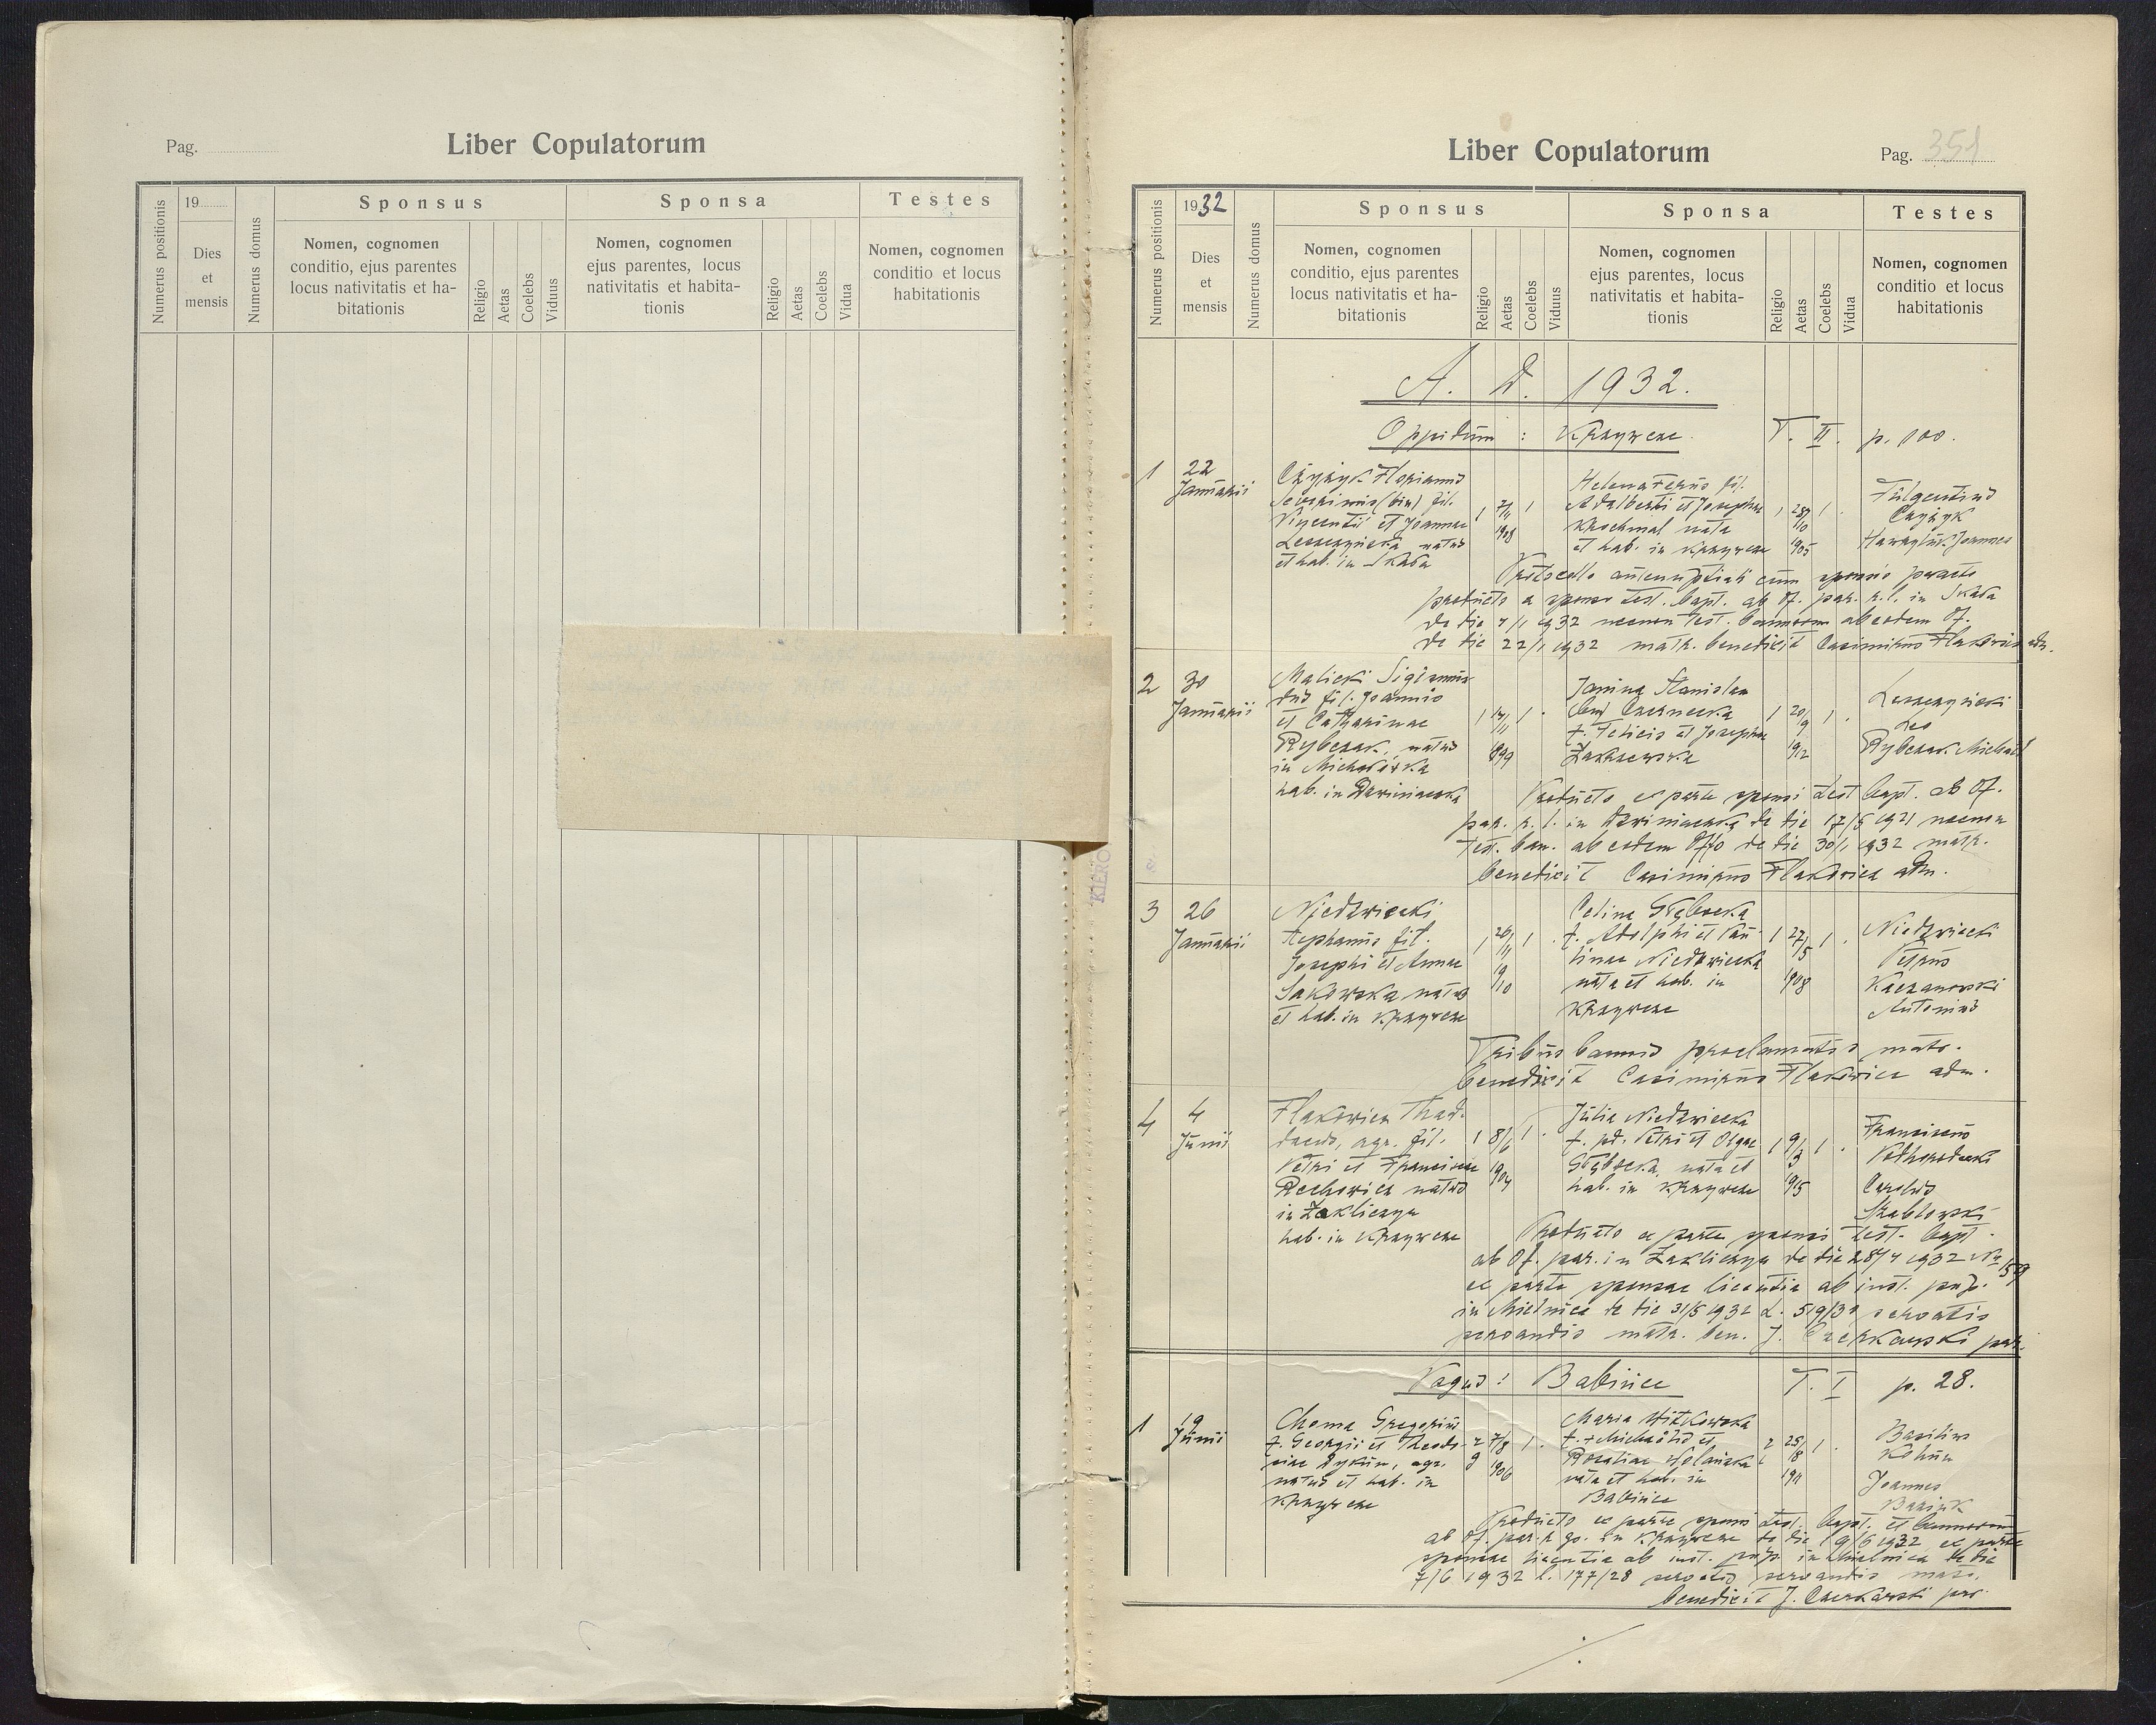 Pag.
Liber Copulatorum
Numerus positionis
19
Dies
et
mensis
Numerus domus
Sponsus
Nomen, cognomen
conditio, ejus parentes
locus nativitatis et ha-
bitationis
Religio
Aetas
Coelebs
Viduus
Sponsa
Nomen, cognomen
ejus parentes, locus
nativitatis et habita-
tionis
Religio
Aetas
Coelebs
Vidua
Testes
Nomen, cognomen
conditio et locus
habitationis
Liber Copulatorum
Pag. 351
Numerus positionis
1932
Dies
et
mensis
Numerus domus
Sponsus
Nomen, cognomen
conditio, ejus parentes
locus nativitatis et ha-
bitationis
Religio
Aetas
Coelebs
Viduus
Sponsa
Nomen, cognomen
ejus parentes, locus
nativitatis et habita-
tionis
Religio
Aetas
Coelebs
Vidua
Testes
Nomen, cognomen
conditio et locus
habitationis
A. D. 1932.
Oppidum : Krzywcze T. II p. 100.
1
22
Januarii
Czyżyk Florianus
Severinus (bin) fil.
Vincentii et Joannae
Leszczyńska natus
et hab. in Skała
1 1908 1
Helena Ferns fil.
Adalberti et Josephae
Krochmal nata
et hab. in Krzywcze
1 28/10 1905 1
Fulgentius
Czyżyk
Joannes
cum sponsis
producto a sponso test. bapt. ab Of. par. r. l. in Skała
de die 1932 necnon test. bannorum ab eodem Of.
de die 22/1 1932 matr. benedixit Casimirus Flakowicz adm.
2
30
Januarii
Malicki Sigismun
dus fil. Joannis
et Catharinae
Rybczak, natus
in Michałówka
hab. in Dzwiniaczka
1 1899 1
Janina Stanislaa
(bin) Czernecka
f. Felicis et Josephae
Zakrzewska
1 20/9 1912 1
Leszczyński
Leo
Rybczak Michael
Producto ex parte sponsi test bapt. ab Of.
par. r. l. in Dzwiniaczka de die 17/5 1921 necnon
test. ban. ab eodem Offo de die 30/1 1932 matr.
benedixit Casimirus Flakowicz adm.
3
26
Januarii
Niedzwiecki
Stephanus fil.
Josephi et Annae
Sakowska natus
et hab. in Krzywcze
1 26/11 1910 1
Celina Głębocka
f. Adolphi et Pau-
linae Niedzwiecka
nata et hab. in
Krzywcze
1 27/5 1908 1
Niedzwiecki
Petrus
Kaczanowski
Antonius
Tribus bannis proclamatis matr.
benedixit Casimirus Flakowicz adm.
4
4
Junii
Flakowicz Thad-
daeus, agr. fil.
Petri et Franciscae
Rechowicz natus
in Zakliczyn
hab. in Krzywcze
1 8/6 1904 1
Julia Niedzwiecka
f. Petri et Olgae
Głębocka, nata et
hab. in Krzywcze
1 9/3 1915 1
Franciscus
Podhorodecki
Carolus
Skabłowski
Producto ex parte sponsi test. bapt.
ab Of. par. in Zakliczyn de die 28/4 1932 Nr
ex parte sponsae licentia ab inst. pup.
in Mielnica de die 31/5 1932 L. 519/30 servatis
servandis matr. ben. J. Czerkawski par.
Pagus: Babińce T. I p. 28.
1
19
Junii
Choma Gregorius
f. Georgii et Theodo-
siae Dykun, agr.
natus et hab. in
Krzywcze
2 7/8 1906 1
Maria Witkowska
f. + Michaëlis et
Rosaliae
nata et hab. in
Babińce
2 25/8 1911 1
Basilius
Kohun
Joannes
Producto ex parte sponsi test. bapt. et bannorum
ab Of. par. r. gr. in Krzywcze de die 19/6 1932 ex parte
sponsae licentia ab inst. pup. in Mielnica de die
7/6 1932 l. 177/28 servatis servandis matr.
benedixit J. Czerkawski par.